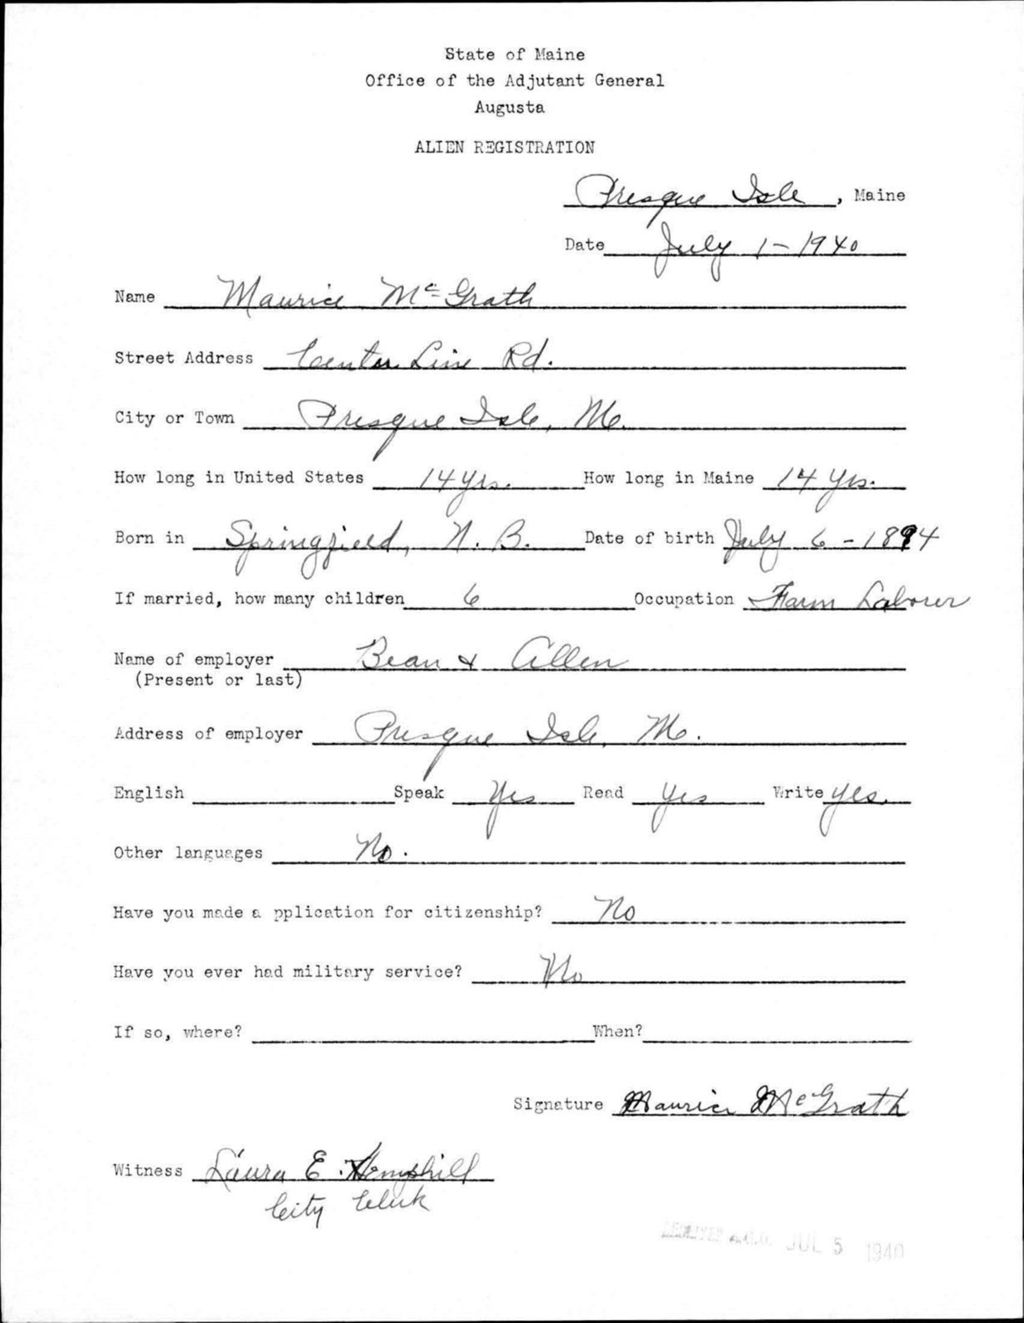 State of Maine
Office of the Adjutant General
Augusta
ALIEN REGISTRATION
Presque Isle, Maine
Date July 1 - 1940
Name Maurice McGrath
Street Address Center Line Rd.
City or Town Presque Isle, Me.
How long in United States 14 yrs. How long in Maine 14 yrs.
Born in Springfield, N. B. Date of birth July 6 - 1894
If married, how many children 6 Occupation Farm Laborer
Name of employer Bean & Allen
(Present or last)
Address of employer Presque Isle, Me.
English Speak Yes Read Yes Write Yes.
Other languages No.
Have you made a pplication for citizenship? No
Have you ever had military service? No
If so, where? When?
Signature Maurice McGrath
Witness Laura E. Hemphill
City Clerk
JUL 5 1940